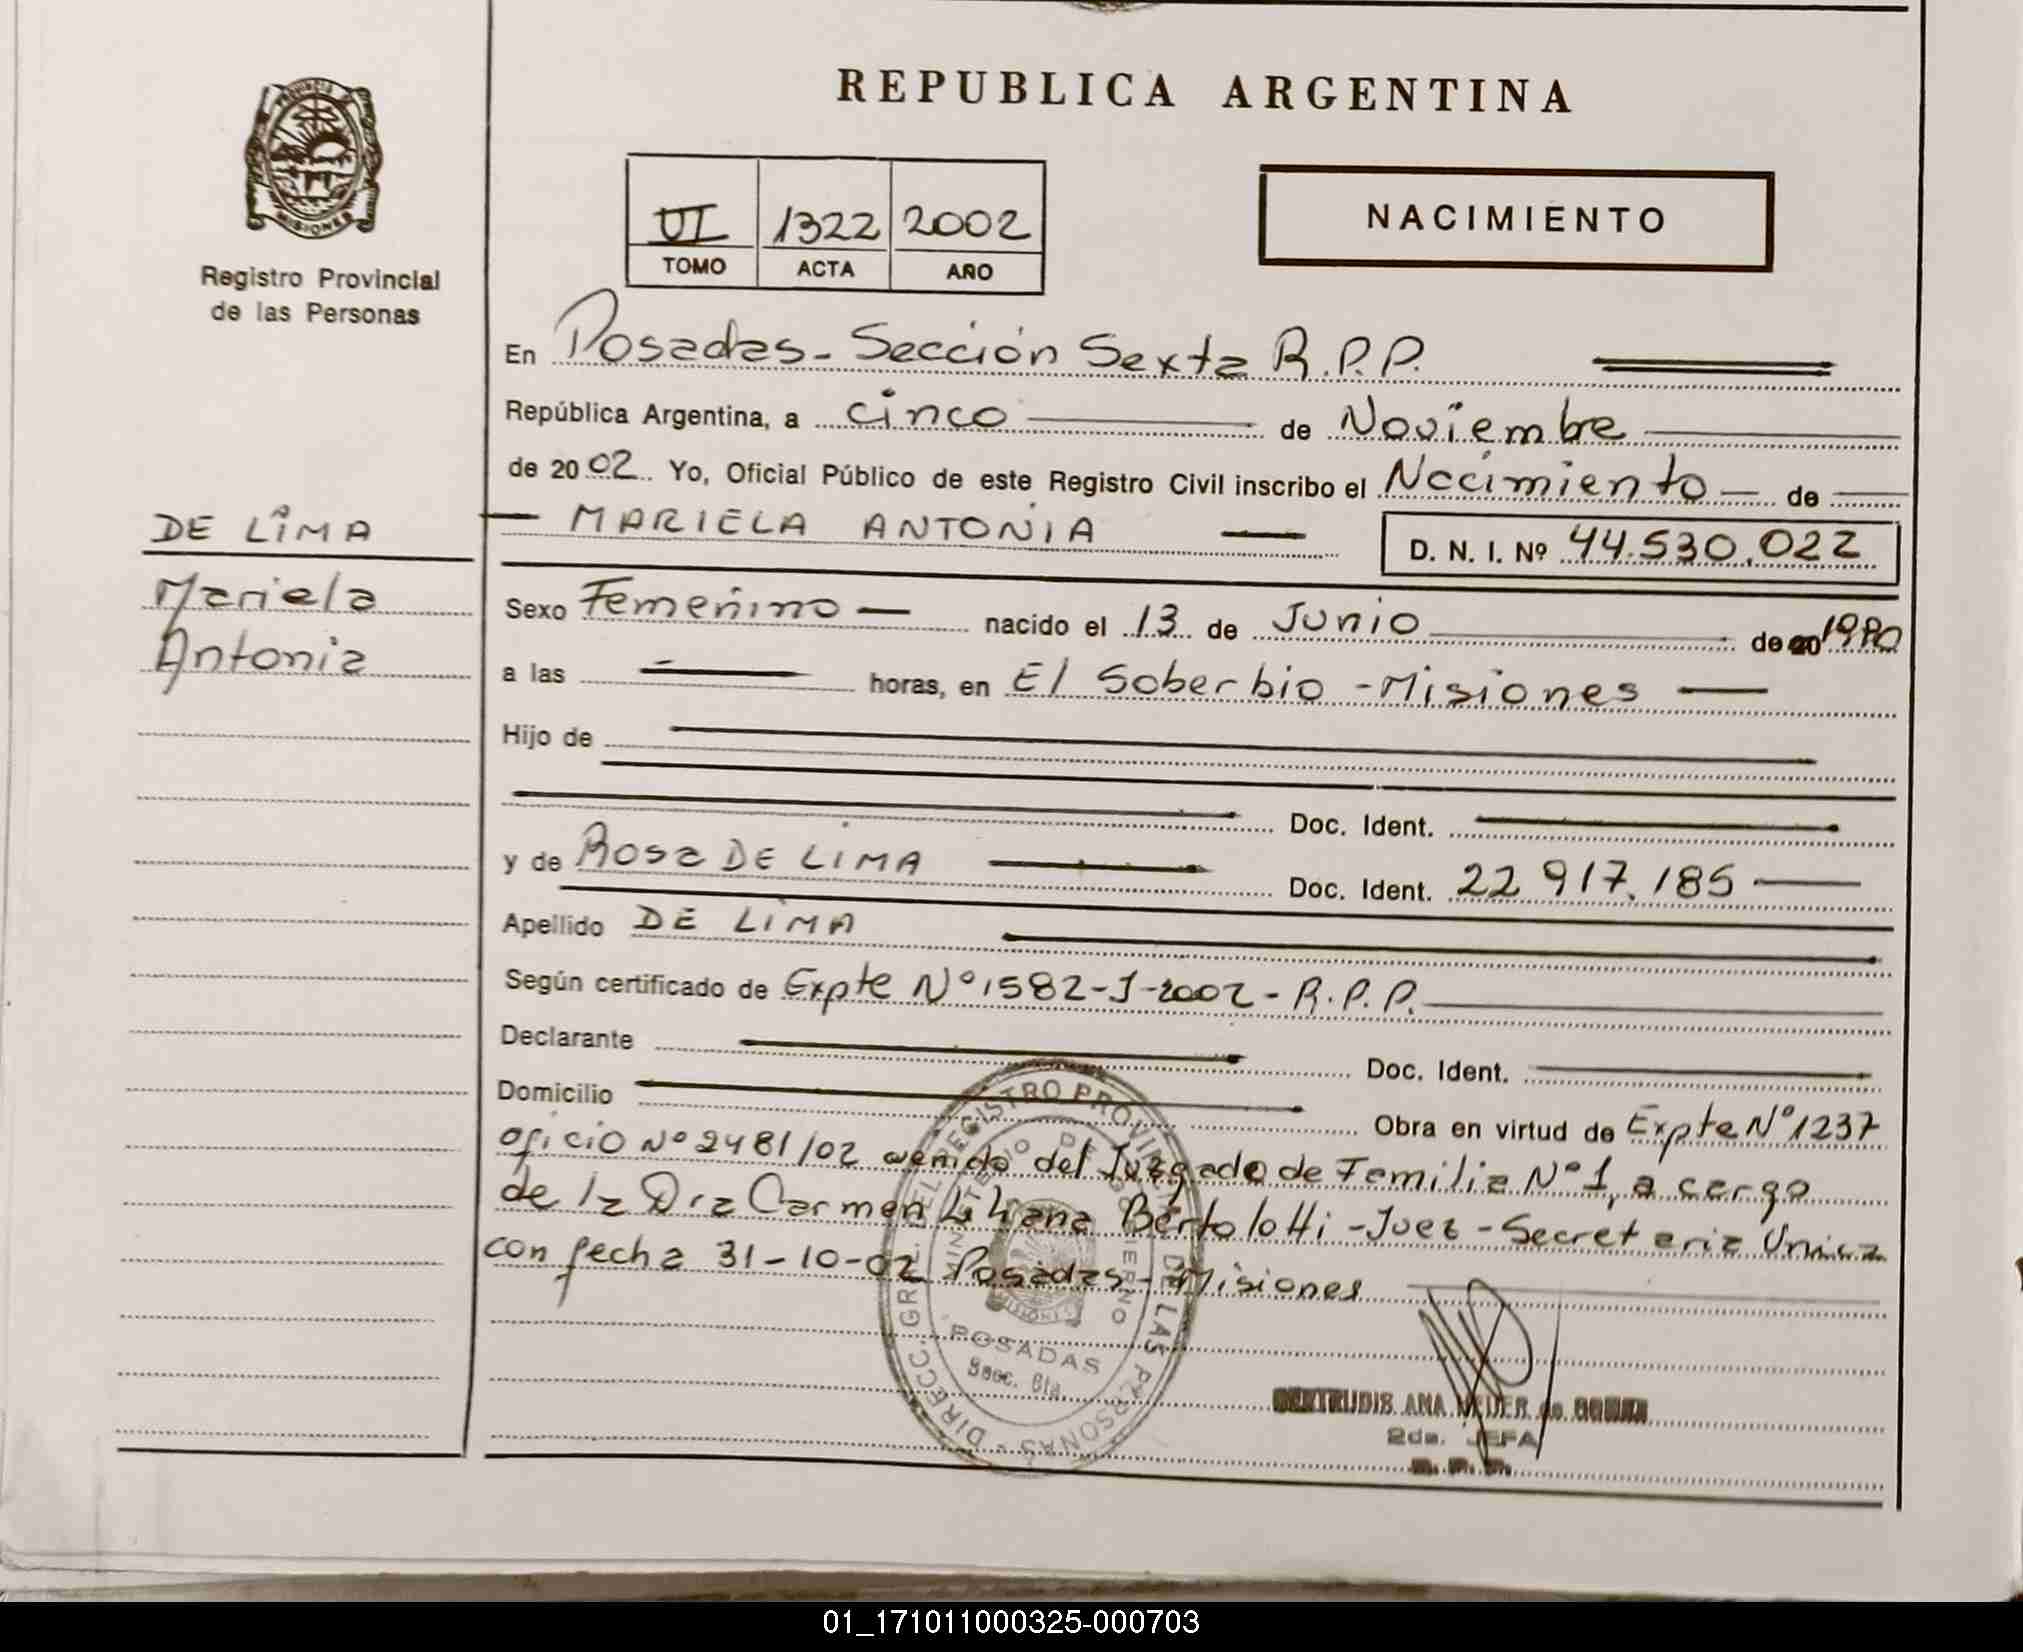 REPUBLICA ARGENTINA
VI 1322 2002
TOMO ACTA AÑO
NACIMIENTO
PROVINCIA DE
MISIONES
Registro Provincial
de las Personas
DE LIMA
Mariela
Antonia
En Posadas - Sección Sexta R.P.P.
República Argentina, a cinco de Noviembre
de 2002. Yo, Oficial Público de este Registro Civil inscribo el Nacimiento de
MARIELA ANTONIA D. N. I. Nº 44.530.022
Sexo Femenino nacido el 13 de Junio de 20
a las horas, en El Soberbio - Misiones
Hijo de
Doc. Ident.
y de Rosa DE LIMA Doc. Ident. 22 917.185
Apellido DE LIMA
Según certificado de Expte Nº 1582-J-2002 - R.P.P.
Declarante Doc. Ident.
Domicilio Obra en virtud de Expte Nº 1237
oficio Nº 2481/02 venido del Juzgado de Familia Nº 1, a cargo
de la Dra Carmen Liliana Bertolotti - Juez - Secretaria Unica
con fecha 31-10-02 Posadas - Misiones
DIRECC. GRL. DEL REGISTRO PROVINCIAL DE LAS PERSONAS
MINISTERIO DE GOBIERNO
POSADAS
Secc. 6ta.
GERTRUDIS ANA
2da. JEFA
R. P. P.
01_171011000325-000703